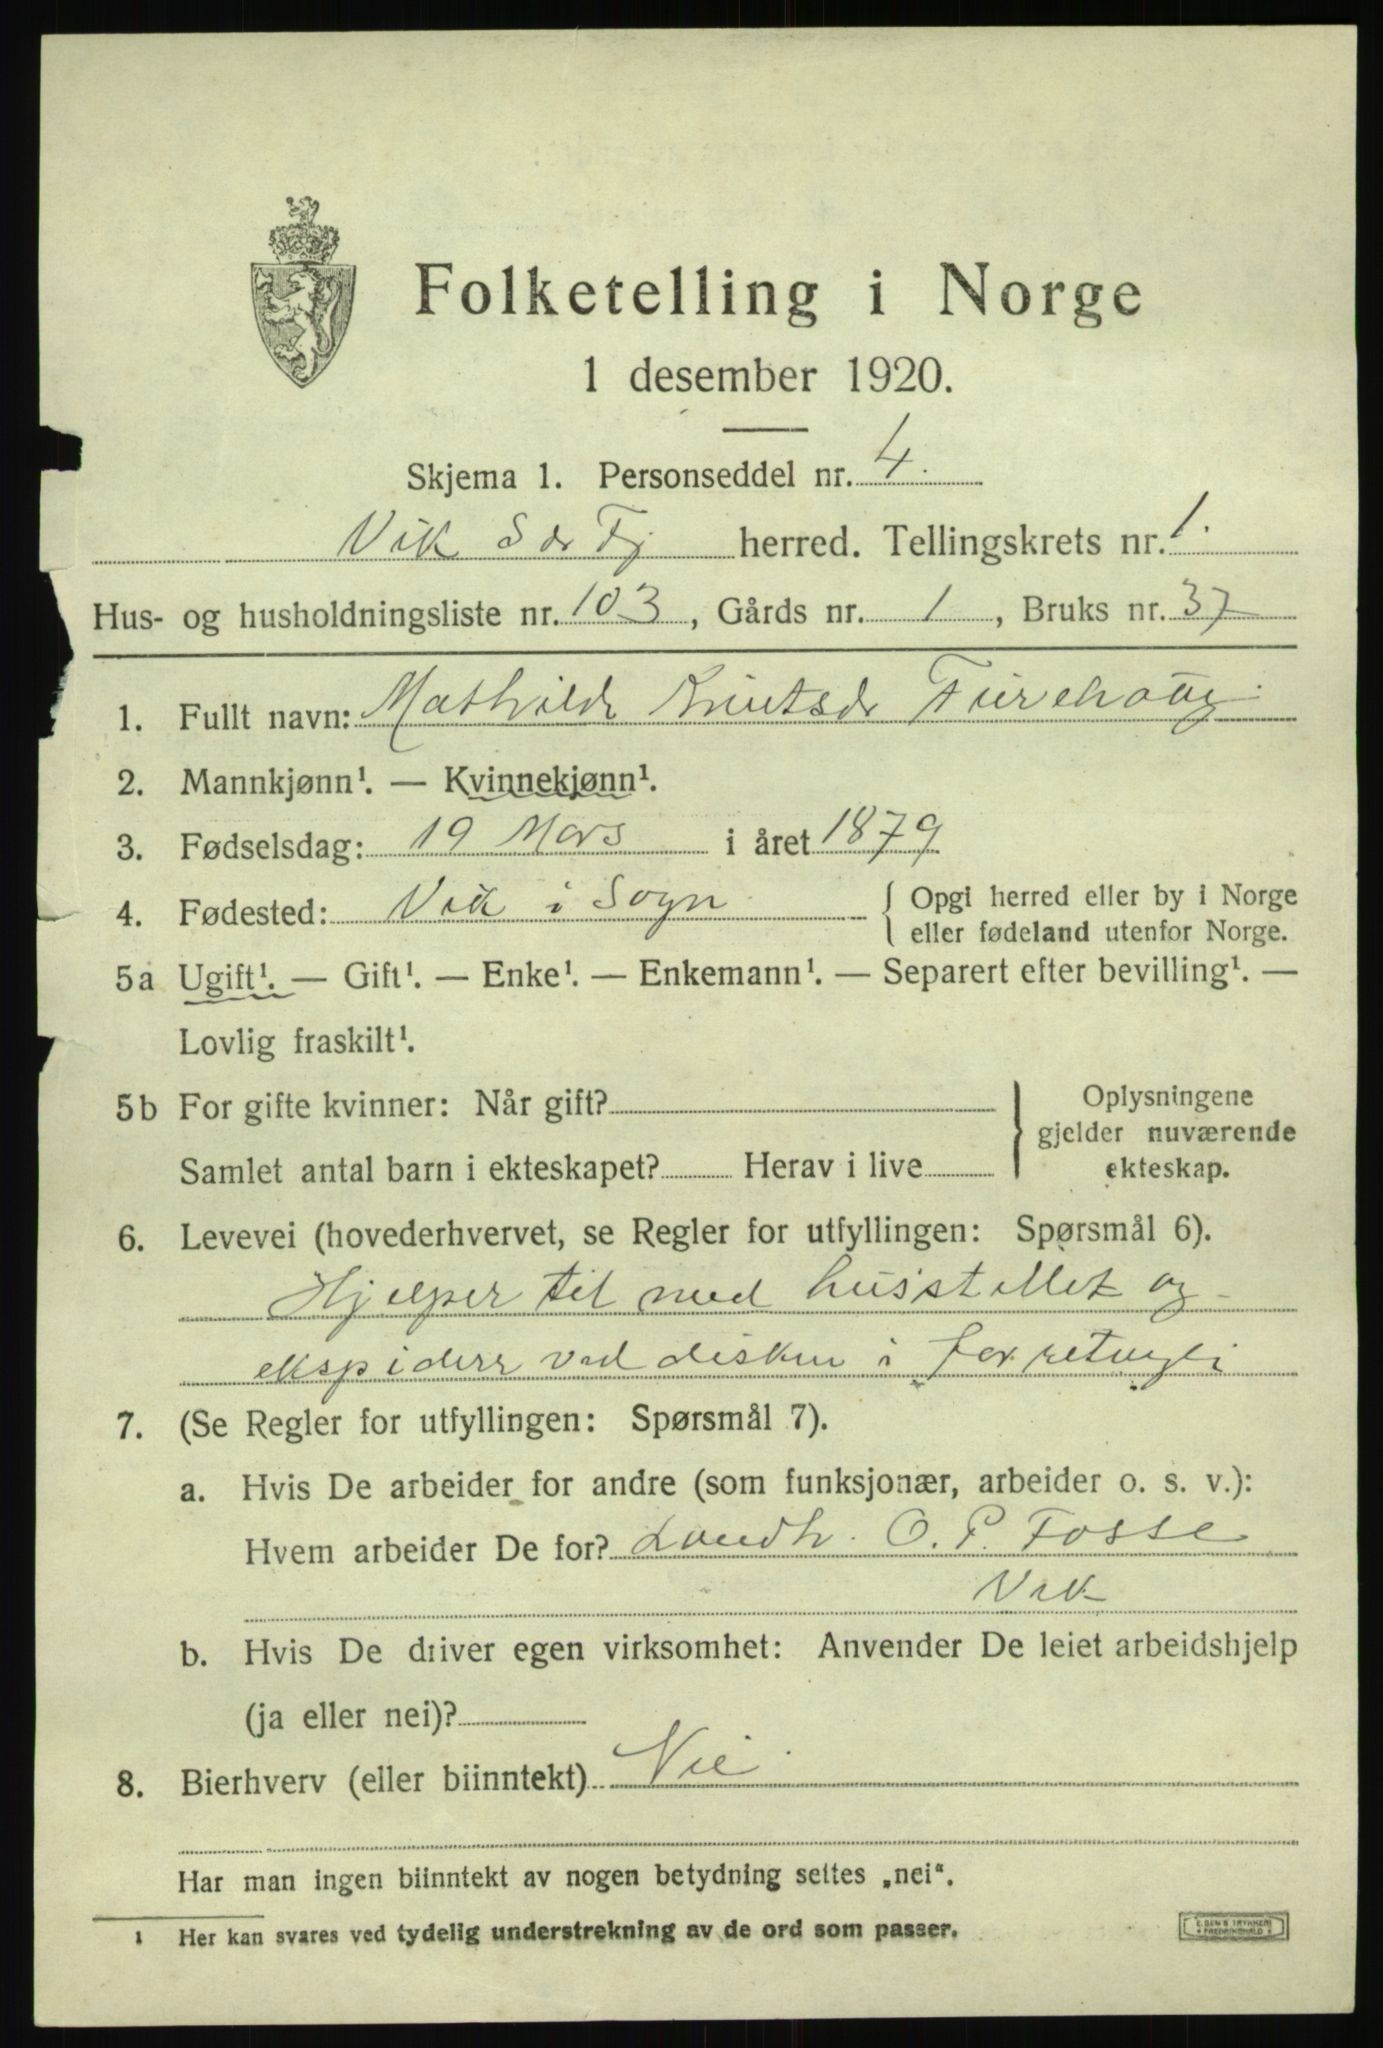 Folketelling i Norge
1 desember 1920.
Skjema 1. Personseddel nr. 4.
Vik herred. Tellingskrets nr. 1.
Hus- og husholdningsliste nr. 103, Gårds nr. 1, Bruks nr. 37
1. Fullt navn: Mathilde Knutsdr Turehaug
2. Mannkjønn¹. — Kvinnekjønn¹.
3. Fødselsdag: 19 Mars i året 1879
4. Fødested: Vik i Sogn { Opgi herred eller by i Norge
eller fødeland utenfor Norge.
5a Ugift¹. — Gift¹. — Enke¹. — Enkemann¹. — Separert efter bevilling¹. —
Lovlig fraskilt¹.
5b For gifte kvinner: Når gift?
Samlet antal barn i ekteskapet? Herav i live
} Oplysningene
gjelder nuværende
ekteskap.
6. Levevei (hovederhvervet, se Regler for utfyllingen: Spørsmål 6).
Hjelper til med husstellet og
ekspiderer ved disken i
7. (Se Regler for utfyllingen: Spørsmål 7).
a. Hvis De arbeider for andre (som funksjonær, arbeider o. s. v.):
Hvem arbeider De for? Landh. O. P. Fosse
Vik
b. Hvis De driver egen virksomhet: Anvender De leiet arbeidshjelp
(ja eller nei)?
8. Bierhverv (eller biinntekt) Nei
Har man ingen biinntekt av nogen betydning settes „nei“.
1 Her kan svares ved tydelig understrekning av de ord som passer.